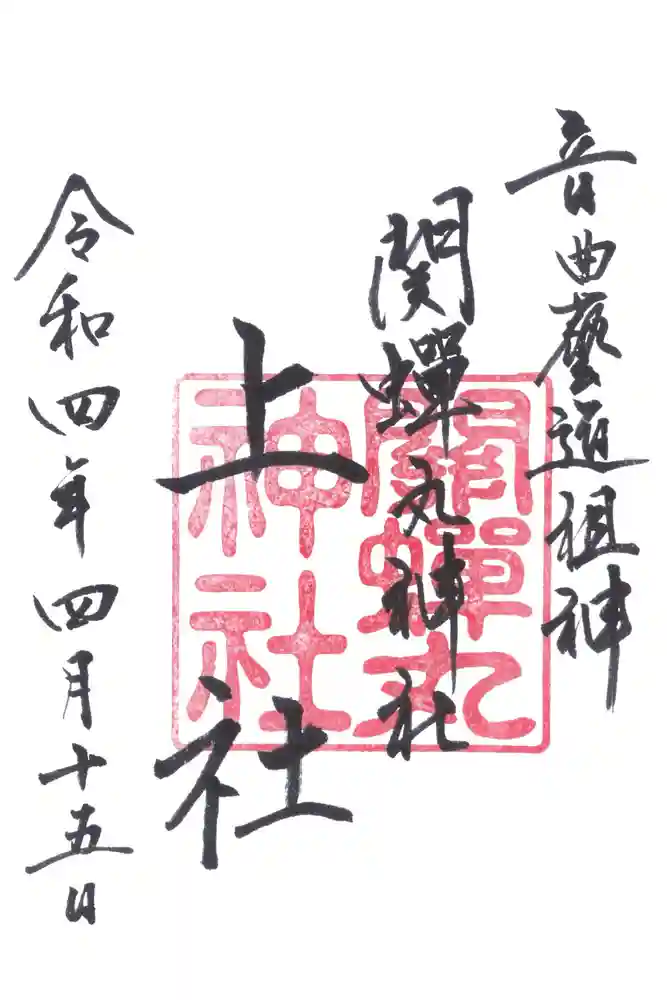 音曲藝道祖神
関蟬丸神社
上社
令和四年四月十五日
關蟬丸
神社